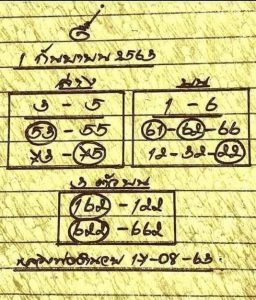 1 กันยายน 2563
ล่าง บน
3 - 5 1 - 6
53 - 55 61 - 62 - 66
73 - 75 12 - 32 - 22
3 ตัวบน
162 - 122
622 - 662
17-08-63